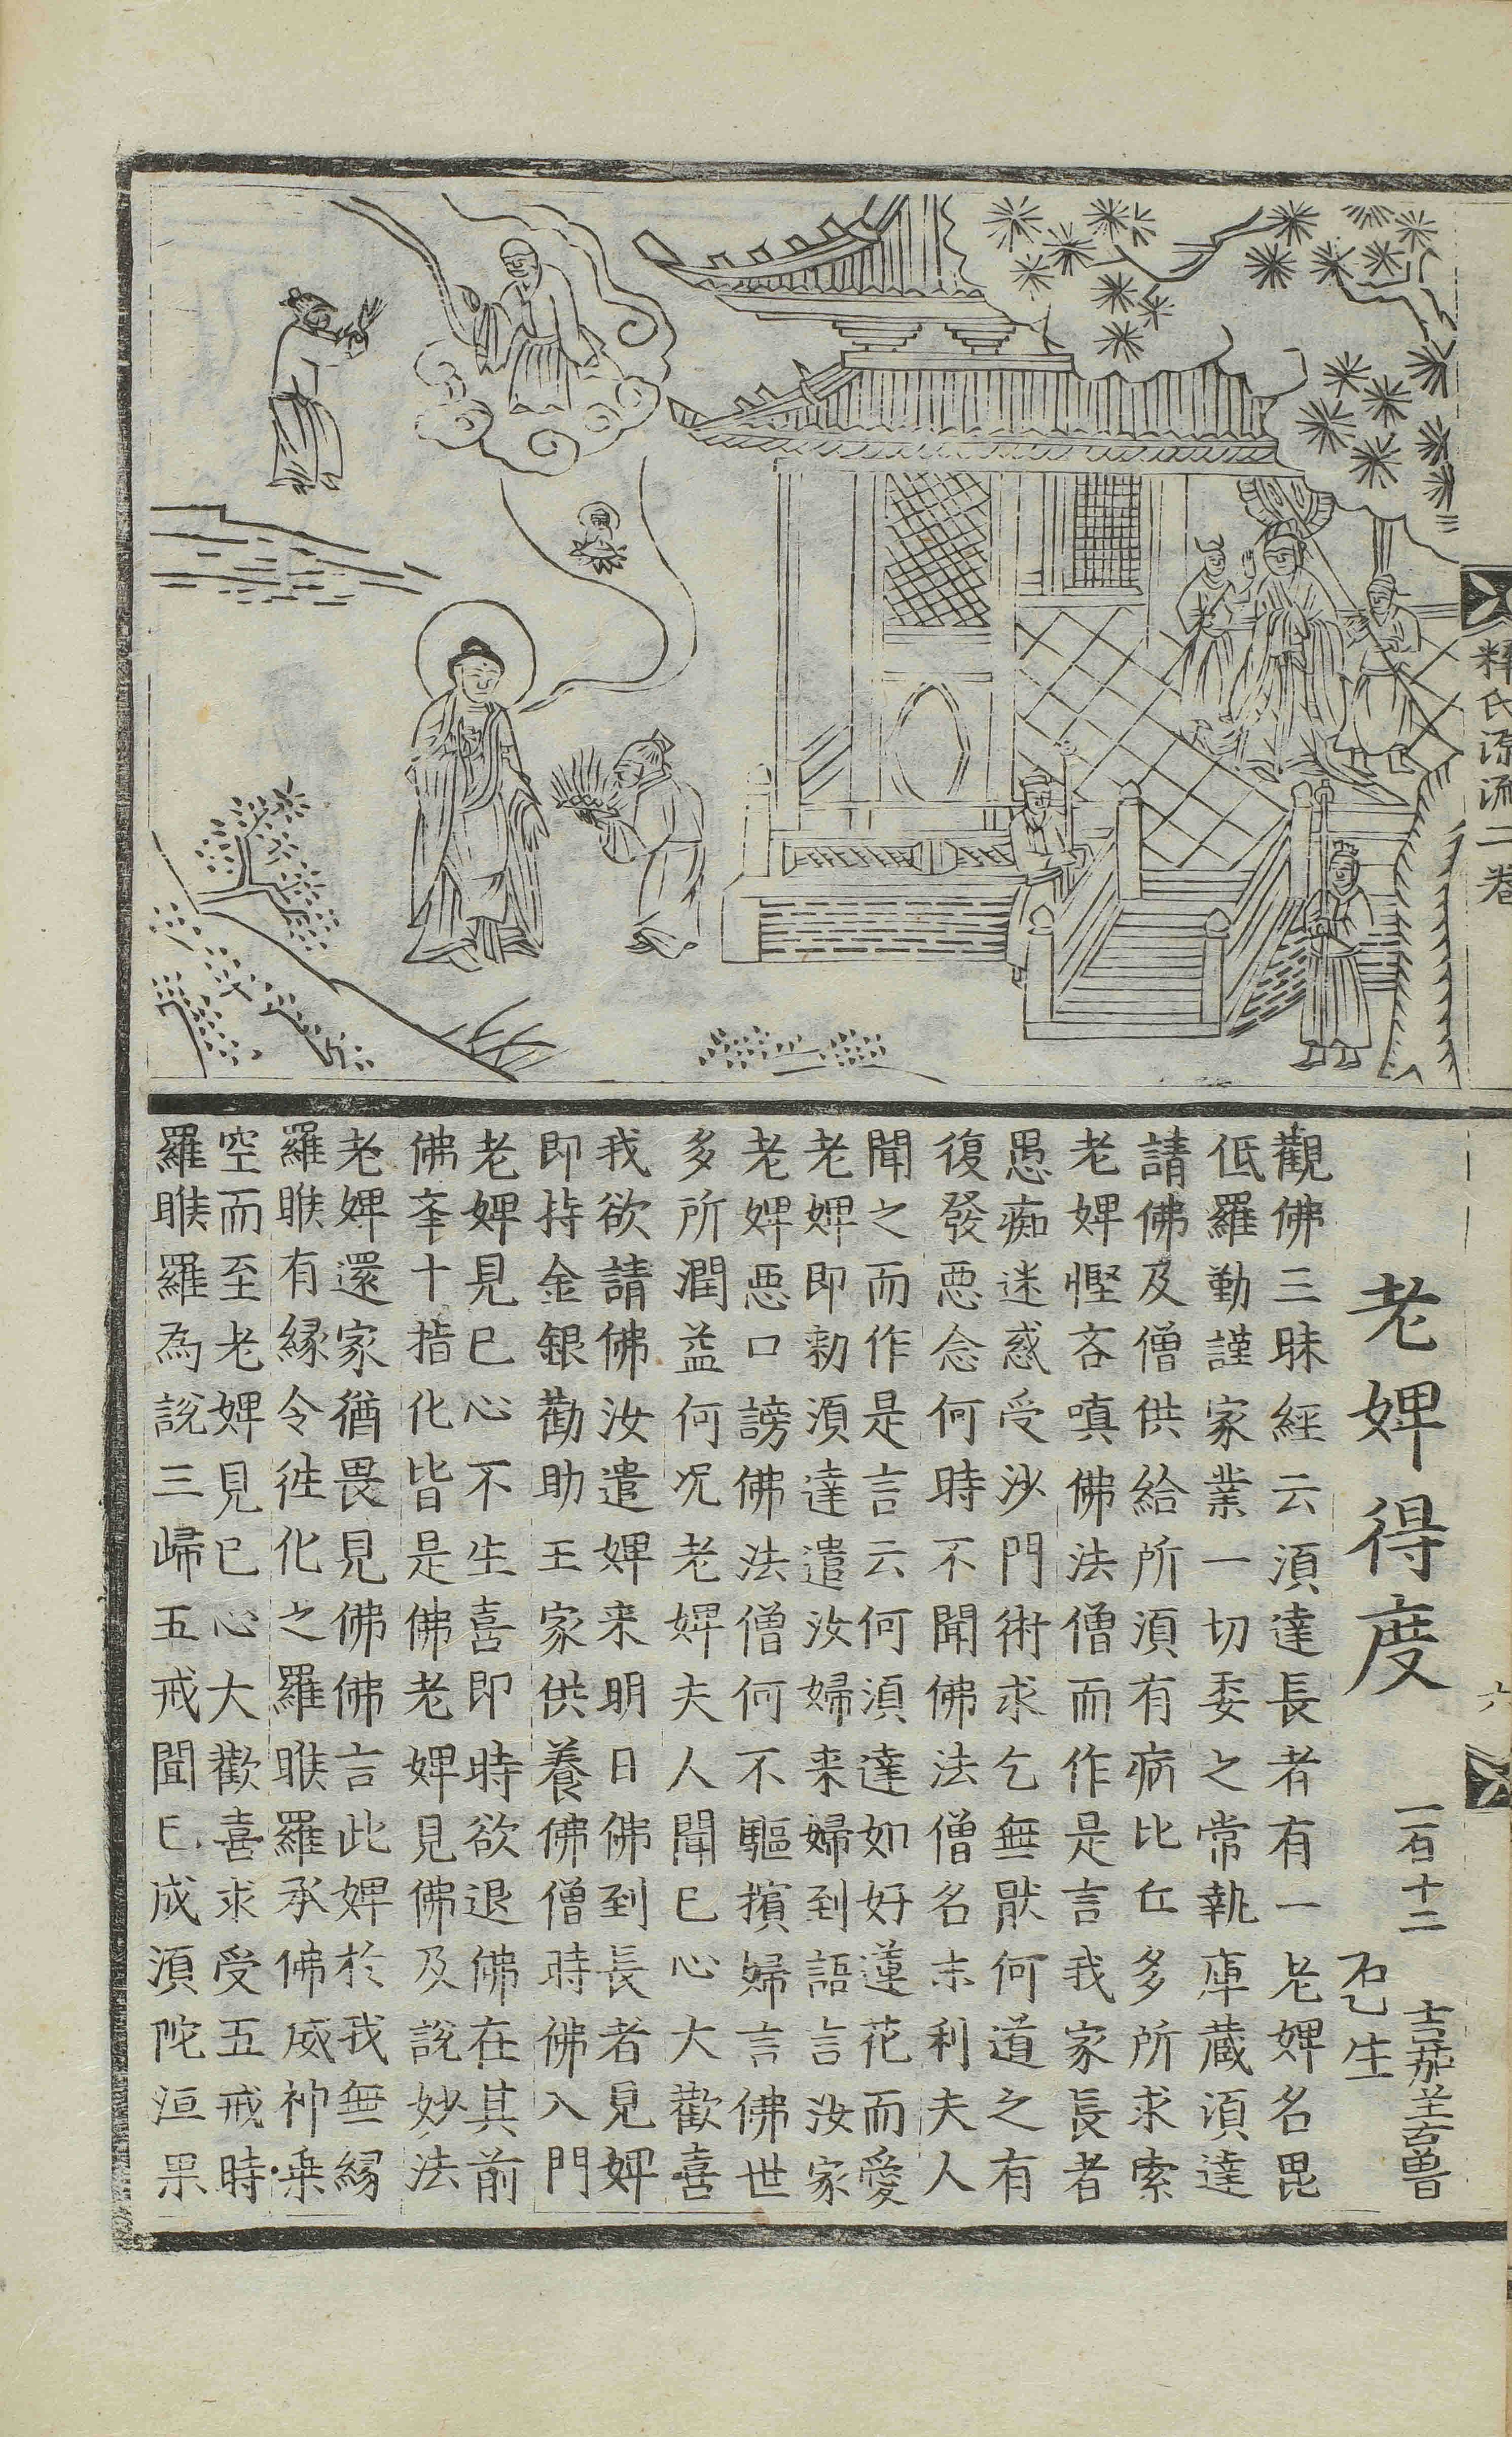 釋氏源流二卷
六
老婢得度
一百十二
觀佛三昧經云湏達長者有一老婢名毘
低羅勤謹家業一切委之常執庫蔵湏達
請佛及僧供給所湏有病比丘多所求索
老婢慳吝嗔佛法僧而作是言我家長者
愚痴迷惑受沙門術求乞無猒何道之有
復發惡念何時不聞佛法僧名末利夫人
聞之而作是言云何湏達如好蓮花而愛
老婢即勑湏達遣汝婦来婦到語言汝家
老婢惡口謗佛法僧何不驅擯婦言佛世
多所潤益何况老婢夫人聞已心大歡喜
我欲請佛汝遣婢来明日佛到長者見婢
即持金銀勸助王家供養佛僧時佛入門
老婢見已心不生喜即時欲退佛在其前
佛挙十指化皆是佛老婢見佛及說妙法
老婢還家猶畏見佛佛言此婢於我無緣
羅睺有緣令徃化之羅睺羅承佛威神乗
空而至老婢見已心大歡喜求受五戒時
羅睺羅為說三歸五戒聞已成湏陀洹果